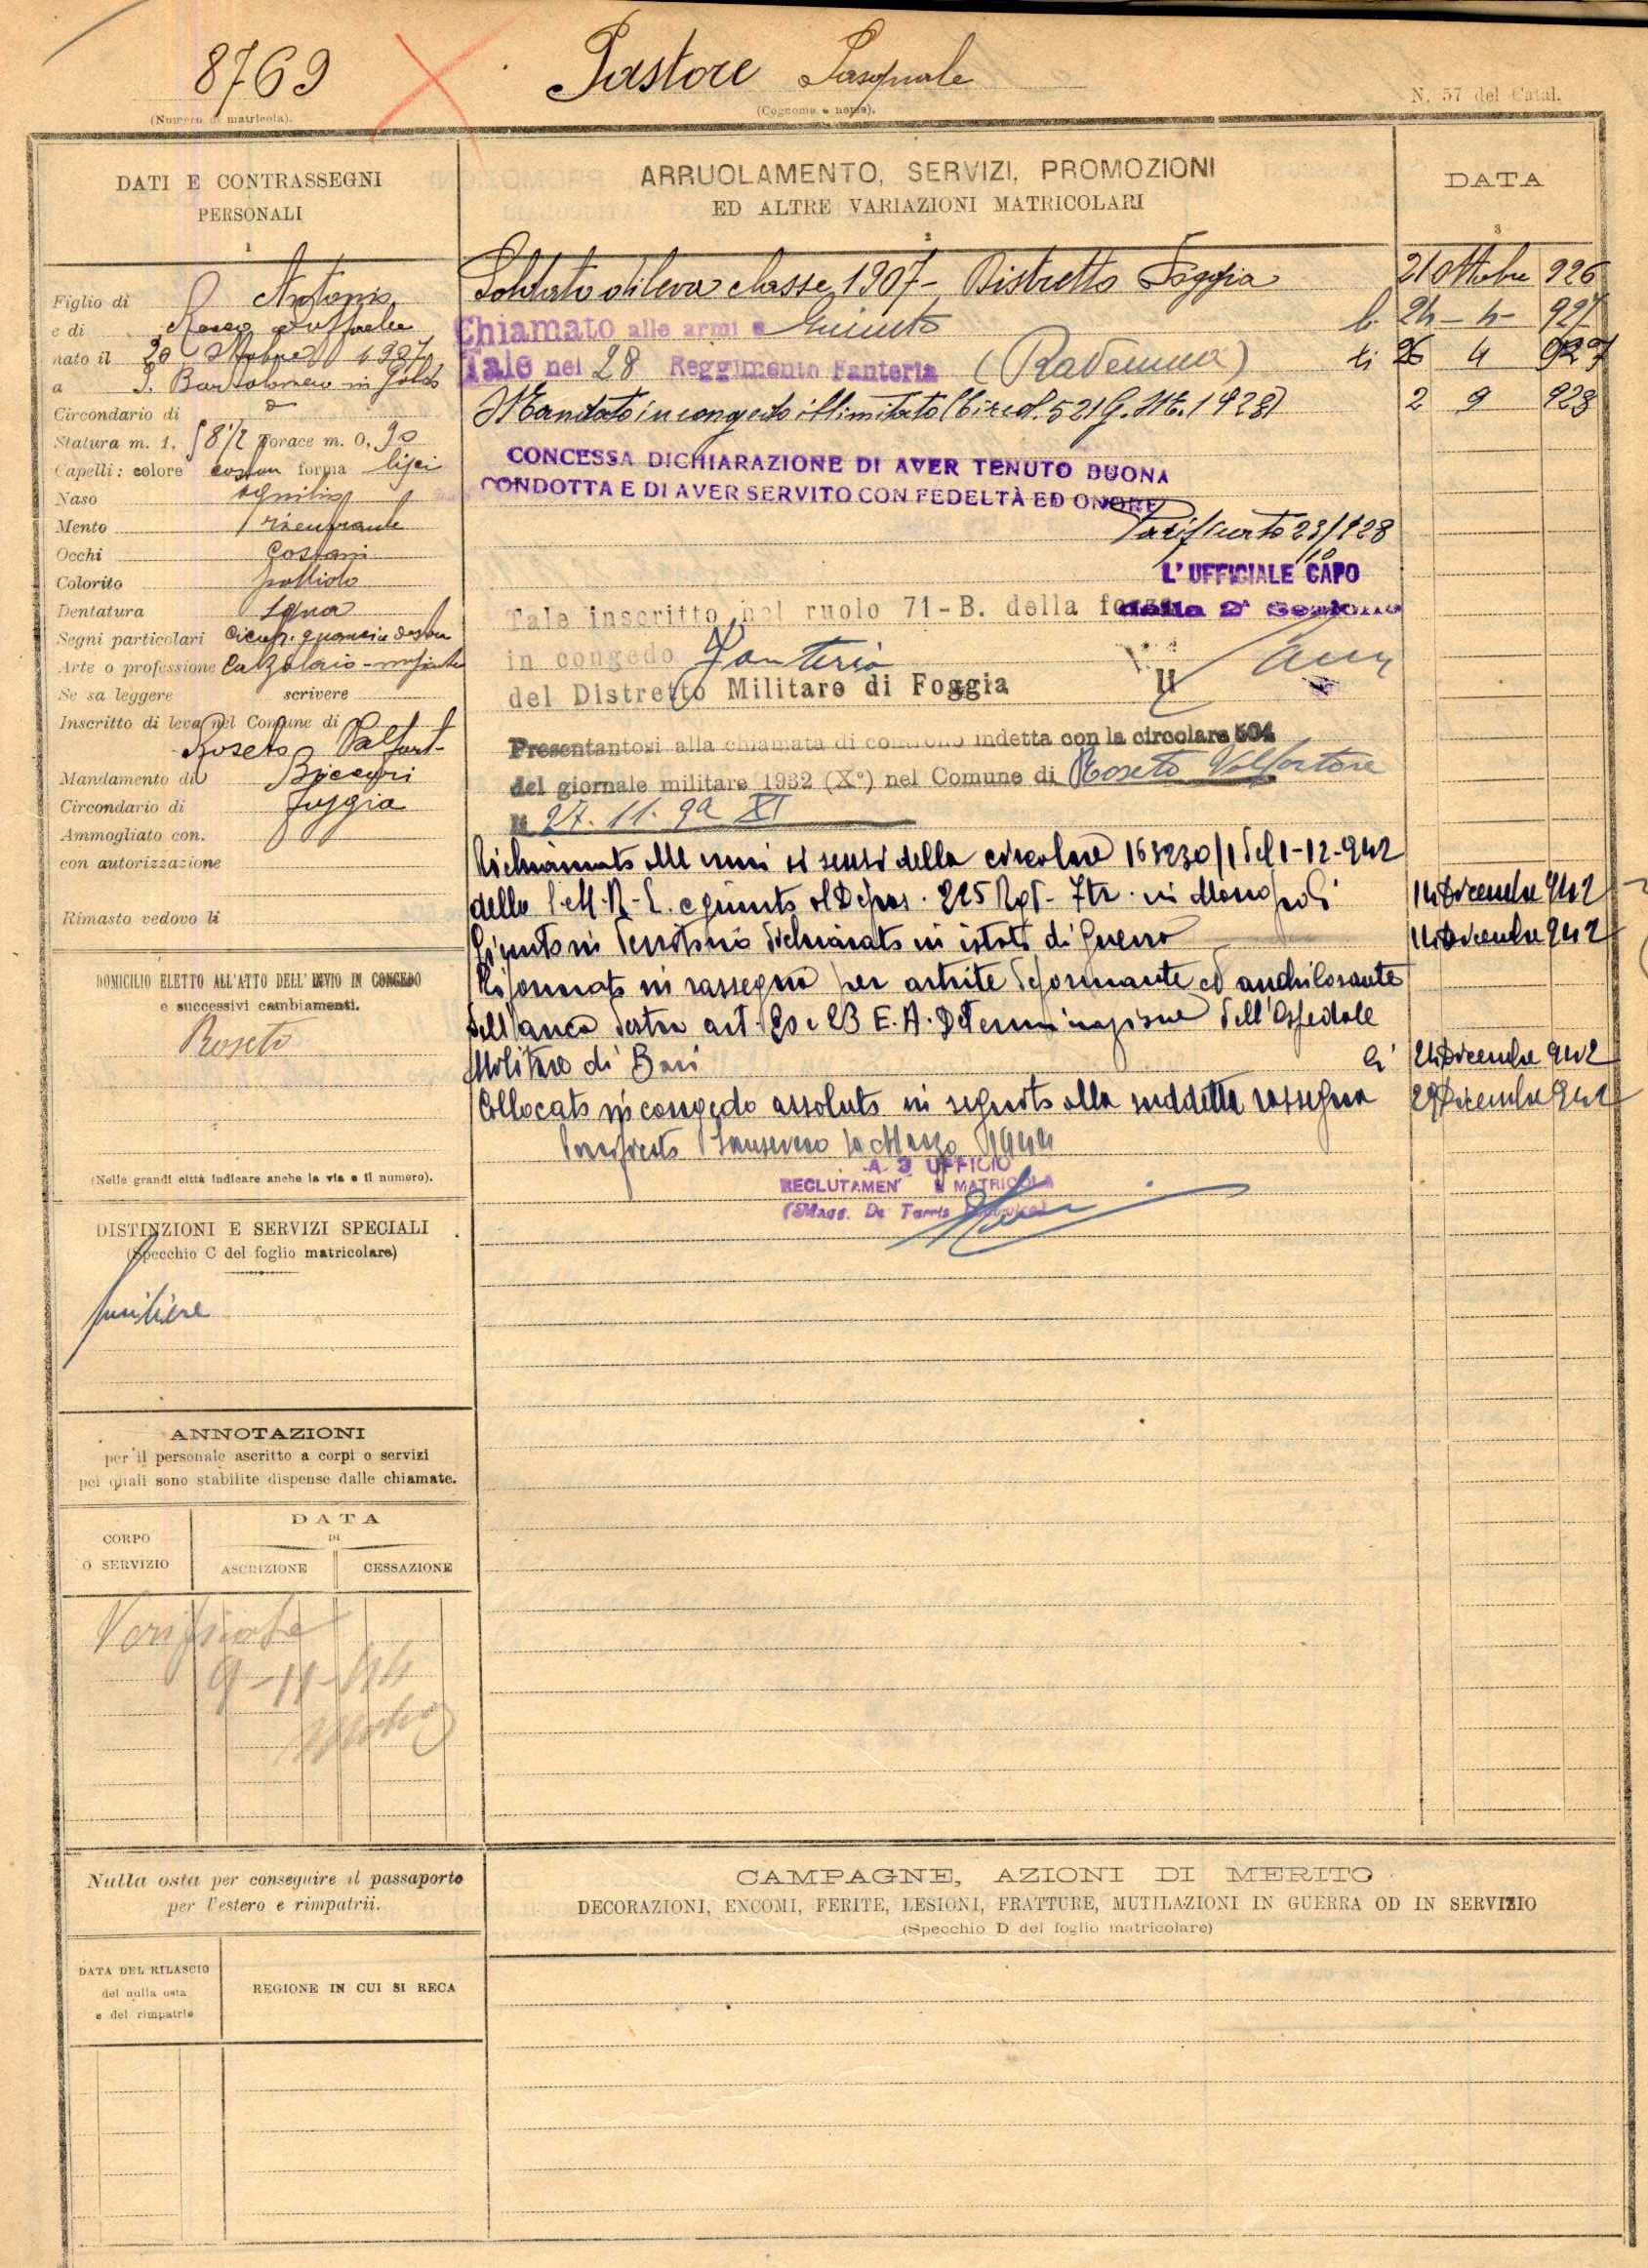 8769
Pastore Pasquale
(Numero di matricola).
(Cognome e nome).
N. 57 del Catal.
DATI E CONTRASSEGNI
PERSONALI
1
Figlio di Antonio
e di
nato il 20 Ottobre 1907
a S. Bartolomeo in Galdo
Circondario di
Statura m. 1, 58 1/2 Torace m. 0, 90
Capelli: colore castan forma lisci
Naso aquilino
Mento rientrante
Occhi Castani
Colorito pallido
Dentatura sana
Segni particolari Cicatr. guancia destra
Arte o professione Calzolaio -
Se sa leggere scrivere
Inscritto di leva nel Comune di
Roseto Valfort-
Mandamento di Biccari
Circondario di Foggia
Ammogliato con.
con autorizzazione
Rimasto vedovo li
DOMICILIO ELETTO ALL'ATTO DELL' INVIO IN CONGEDO
e successivi cambiamenti.
Roseto
(Nelle grandi città indicare anche la via e il numero).
DISTINZIONI E SERVIZI SPECIALI
(Specchio C del foglio matricolare)
fuciliere
ANNOTAZIONI
per il personale ascritto a corpi o servizi
pei quali sono stabilite dispense dalle chiamate.
CORPO
O SERVIZIO
DATA
DI
ASCRIZIONE
CESSAZIONE
Verificato
9-11-44
Nulla osta per conseguire il passaporto
per l'estero e rimpatrii.
DATA DEL RILASCIO
del nulla osta
e del rimpatrio
REGIONE IN CUI SI RECA
ARRUOLAMENTO, SERVIZI, PROMOZIONI
ED ALTRE VARIAZIONI MATRICOLARI
2
DATA
3
Soldato di leva classe 1907 - Distretto Foggia 21 Ottobre 926
Chiamato alle armi e Giunto li 24 - 4 - 927
Tale nel 28 Reggimento Fanteria (Ravenna) li 26 4 927
Mandato in congedo illimitato (Circol. 521 G. M. 1928) 2 9 928
CONCESSA DICHIARAZIONE DI AVER TENUTO BUONA
CONDOTTA E DI AVER SERVITO CON FEDELTÀ ED ONORE
Parificato 23/10 928
L'UFFICIALE CAPO
della 2ª Sezione
Tale inscritto nel ruolo 71-B. della forza
in congedo Fanteria
del Distretto Militare di Foggia
Presentantosi alla chiamata di controllo indetta con la circolare 504
del giornale militare 1932 (X°) nel Comune di Roseto Valfortore
li 27. 11. 932 XI
Richiamato alle armi ai sensi della circolare 163230/1 del 1-12-942
dello S.M.R.E. e giunto al Depos. 225 Rgt. Ftr. in Monopoli 14 Dicembre 942
Giunto in territorio dichiarato in istato di guerra 14 Dicembre 942
Riformato in rassegna per artrite deformante ed anchilosante
dell'anca destra art. 20 e 23 E. A. Determinazione dell'Ospedale
Militare di Bari li 24 Dicembre 942
Collocato in congedo assoluto in seguito alla suddetta rassegna 29 Dicembre 942
Parificato Sansevero Marzo 1944
UFFICIO
RECLUTAMEN E MATRICOLA
(Magg. De Tarris
CAMPAGNE, AZIONI DI MERITO
DECORAZIONI, ENCOMI, FERITE, LESIONI, FRATTURE, MUTILAZIONI IN GUERRA OD IN SERVIZIO
(Specchio D del foglio matricolare)